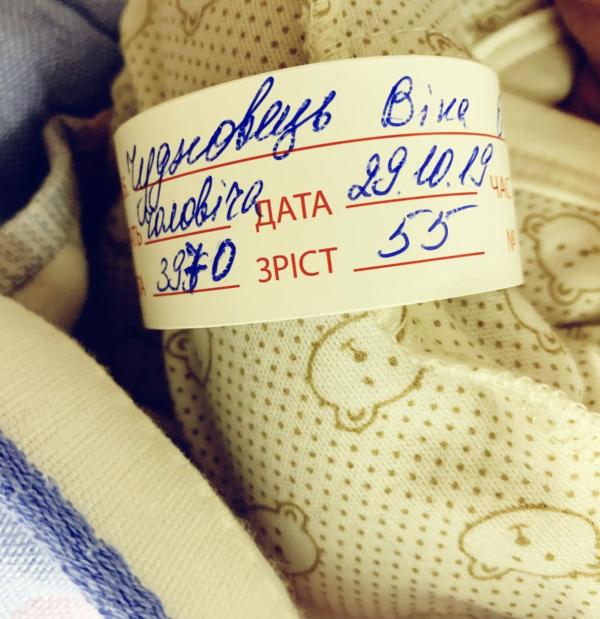 Чудновець Віка
ТЬ Чоловіча ДАТА 29.10.19 ЧАС
ТА 3970 ЗРІСТ 55 №